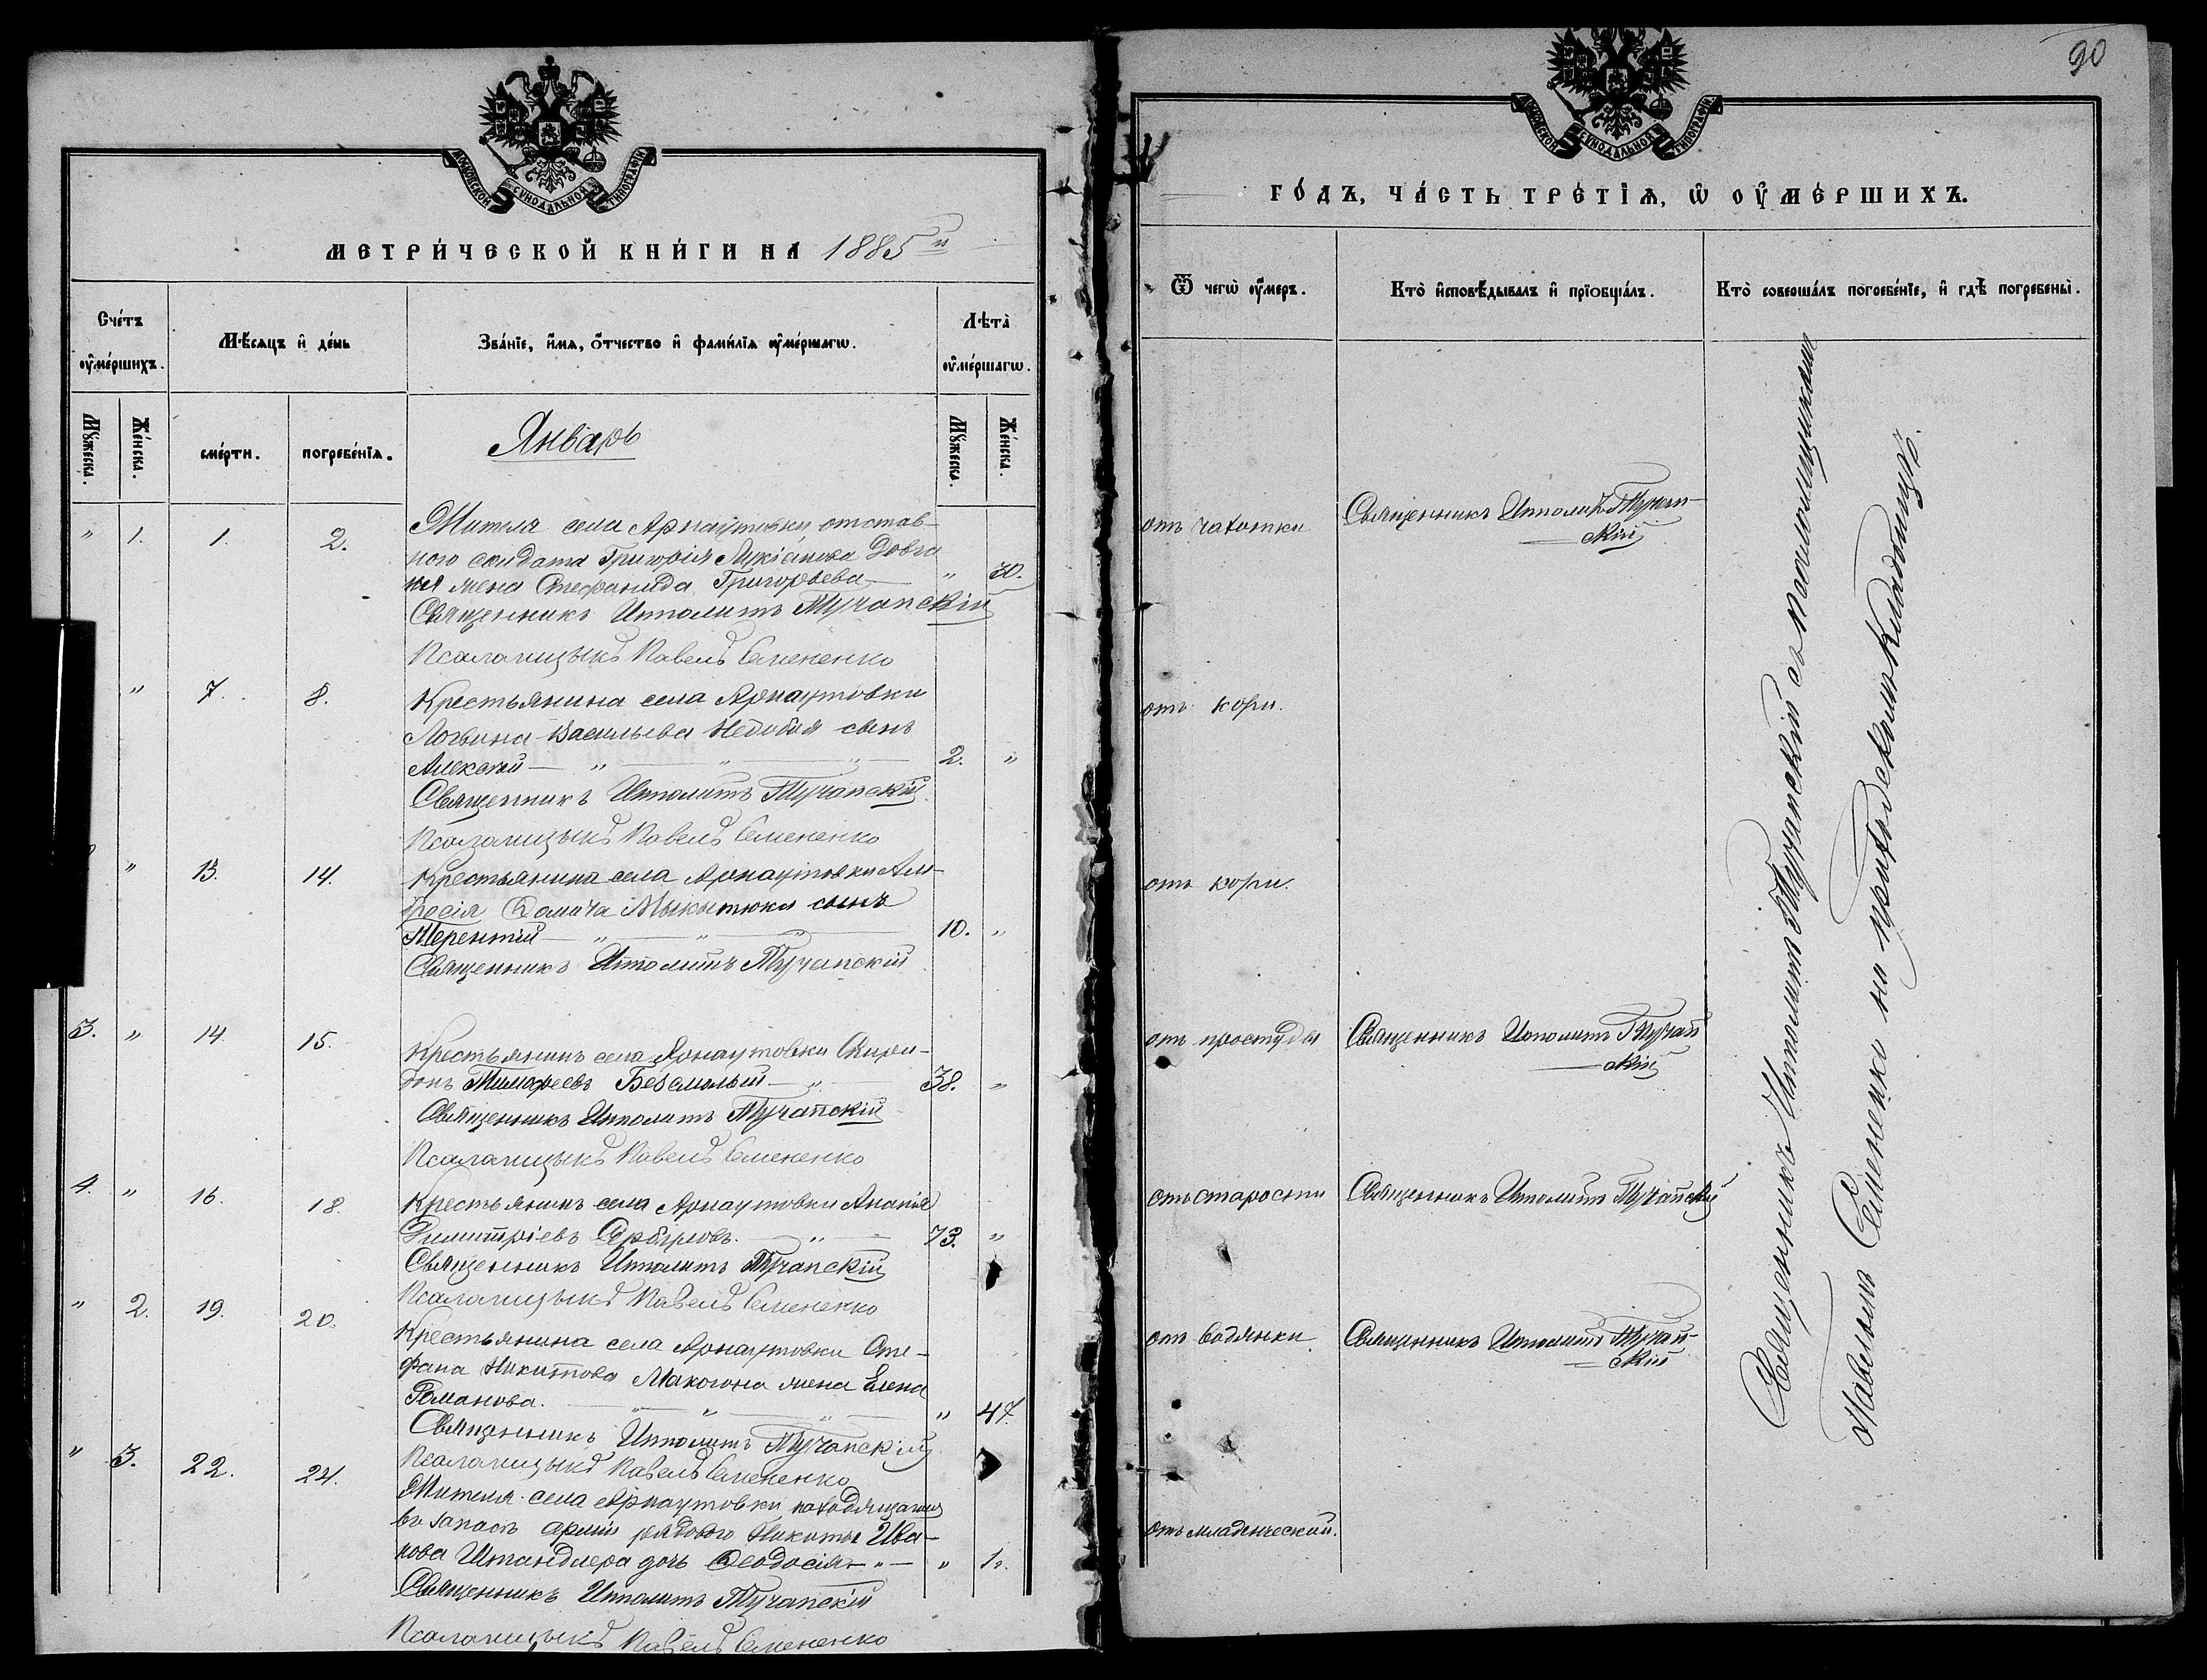 МОСКОВСКОЙ СѴНОДАЛЬНОЙ ТИПОГРАФІИ
МЕТРИЧЕСКОЙ КНИГИ НА 1885й
Счетъ оумершихъ.
Мѣсяцъ и день
Званіе, имя, отчество и фамилія оумершагѡ.
Лѣта оумершагѡ.
Мужеска.
Женска.
смерти.
погребенія.
Январь
Мужеска.
Женска.
" 1. 1. 2. Жителя села Арнаутовки отстав-
ного солдата Григорія Лукіанова Довга
ня жена Стефанида Григорьева — " 30.
Священникъ Ипполитъ Тучапскій
Псаломщыкъ Павелъ Семененко
" 7. 8. Крестьянина села Арнаутовки
Логвина Васильева сынъ
Алексѣй — " — " — " — 2. "
Священникъ Ипполитъ Тучапскій
Псаломщыкъ Павелъ Семененко
" 13. 14. Крестьянина села Арнаутовки Ам-
вросія Мыкытюка сынъ
Терентій — " — " — " — 10. "
Священникъ Ипполитъ Тучапскій
3. " 14. 15. Крестьянинъ села Арнаутовки Спири-
донъ Тимофеевъ — " — 38. "
Священникъ Ипполитъ Тучапскій
Псаломщыкъ Павелъ Семененко
4. " 16. 18. Крестьянинъ села Арнаутовки Ананія
Димитріевъ — " — 73. "
Священникъ Ипполитъ Тучапскій
Псаломщыкъ Павелъ Семененко
" 2. 19. 20. Крестьянина села Арнаутовки Сте-
фана Никитова Макогона жена Елена
Романова. — " — " — " — " 47.
Священникъ Ипполитъ Тучапскій
Псаломщыкъ Павелъ Семененко
" 3. 22. 24. Жителя села Арнаутовки находящагося
въ запасѣ арміи рядового Никиты Ива-
нова Штандлера дочь Ѳеодосія — " — " 1.
Священникъ Ипполитъ Тучапскій
Псаломщыкъ Павелъ Семененко
90
МОСКОВСКОЙ СѴНОДАЛЬНОЙ ТИПОГРАФІИ
ГОДЪ, ЧАСТЬ ТРЕТІЯ, Ѡ ОУМЕРШИХЪ.
Ѿ чегѡ оумеръ.
Кто исповѣдывалъ и пріобщалъ.
Кто совершалъ погребеніе, и гдѣ погребены.
отъ чахотки Священникъ Ипполитъ Тучап-
скій
отъ кори.
отъ кори.
отъ простуды Священникъ Ипполитъ Тучап
скій
отъ старости Священникъ Ипполитъ Тучапскій
отъ водянки Священникъ Ипполитъ Тучап-
скій
отъ младенческой.
Священникъ Ипполитъ Тучапскій съ псаломщикомъ
Павеломъ Семененко на приходскомъ кладбищѣ.